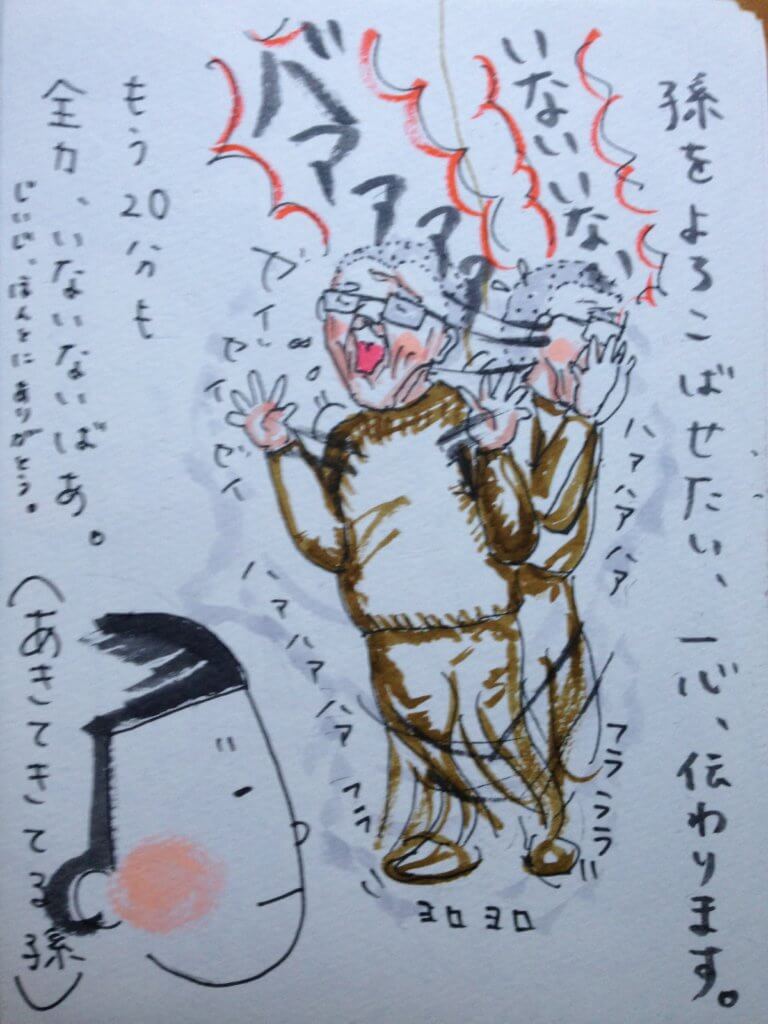 孫をよろこばせたい、一心、伝わります。
いないいない
バアアアア
ゼイ
ゼイ
ゼイ
ハアハアハア
ハアハアハア
ヨロヨロ
もう20分も
全力、いないないばあ。
じいじ、ほんとにありがとう。
(あきてきてる孫)